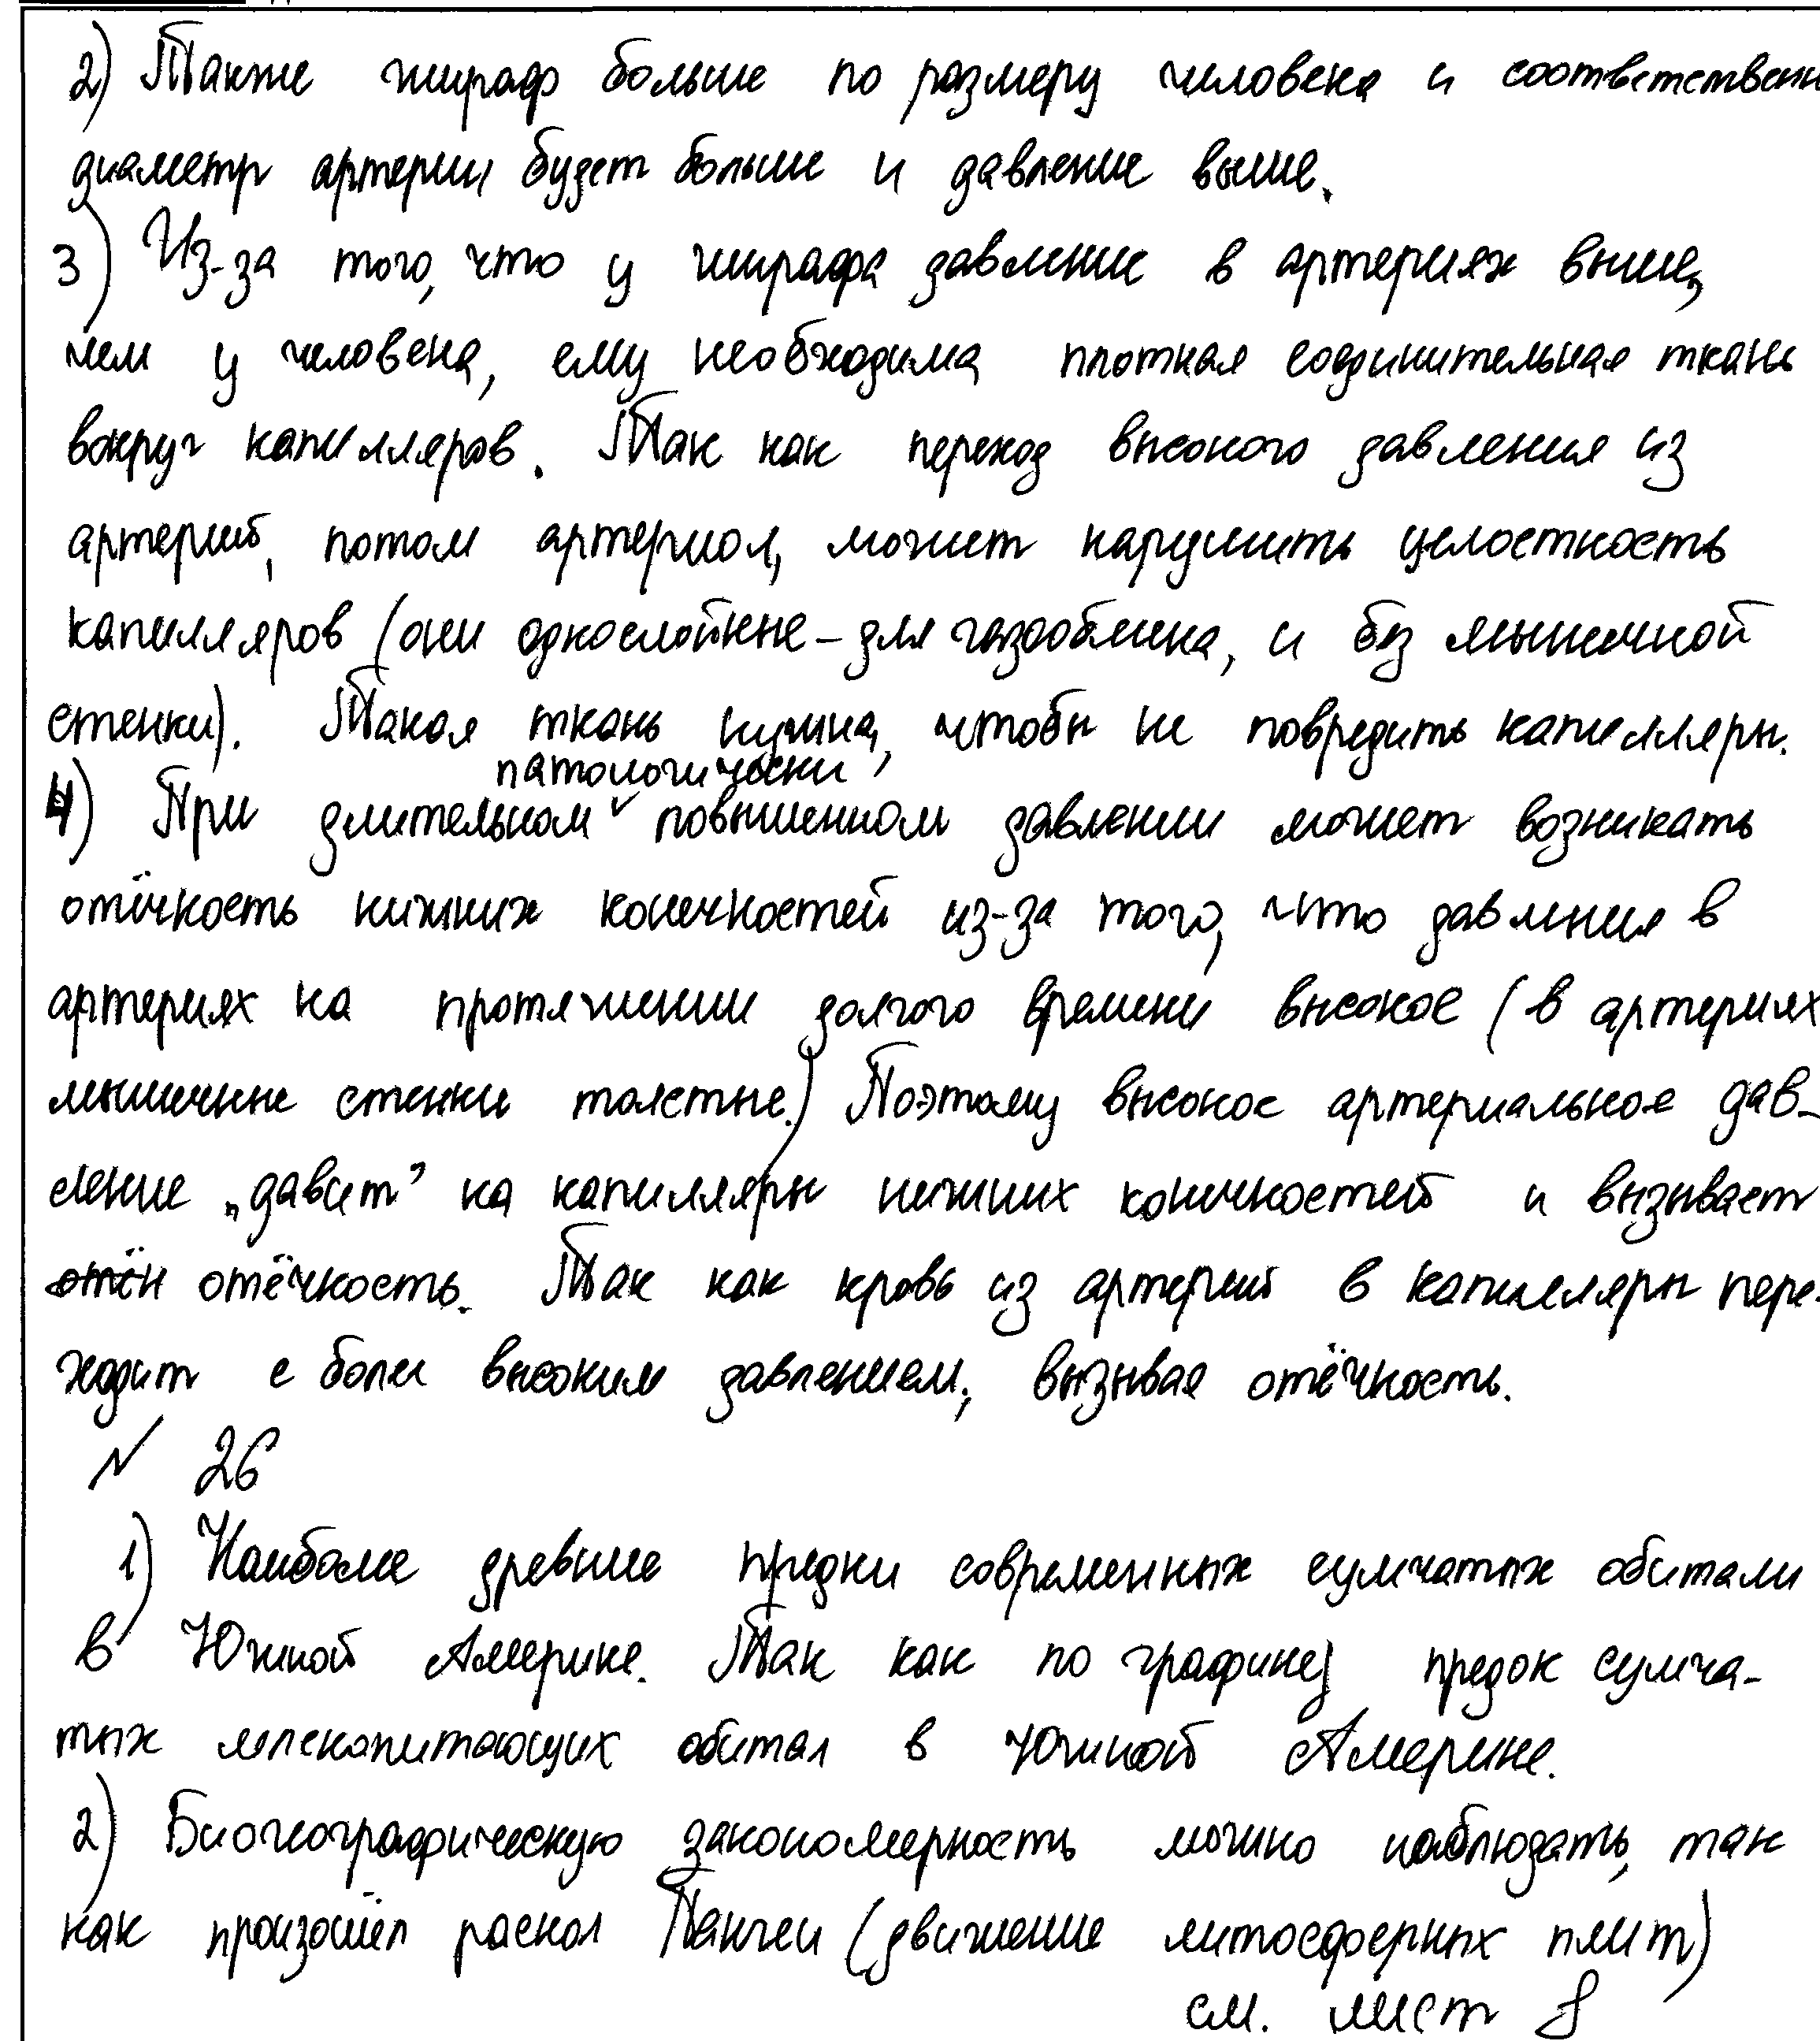 2) Также жираф больше по размеру человека и соответственн
диаметр артерии будет больше и давление выше.
3) Из-за того, что у жирафа давление в артериях выше,
чем у человека, ему необходима плотная соединительная ткань
вокруг капилляров. Так как переход высокого давления из
артерий, потом артериол, может нарушить целостность
капилляров (они однослойные – для газообмена, и без мышечной
стенки). Такая ткань нужна, чтобы не повредить капилляры.
4) При длительном патологически повышенном давлении может возникать
отёчность нижних конечностей из-за того, что давления в
артериях на протяжении долгого времени высокое (в артериях
мышечные стенки толстые.) Поэтому высокое артериальное дав-
ление „давит” на капилляры нижних конечностей и вызывает
отёк отёчность. Так как кровь из артерий в капилляры пере-
ходит с более высоким давлением, вызывая отёчность.
N 26
1) Наиболее древние предки современных сумчатых обитали
в Южной Америке. Так как по графику предок сумча-
тых млекопитающих обитал в Южной Америке.
2) Биогеографическую закономерность можно наблюдать, так
как произошёл раскол Пангеи (движение литосферных плит)
см. лист 8